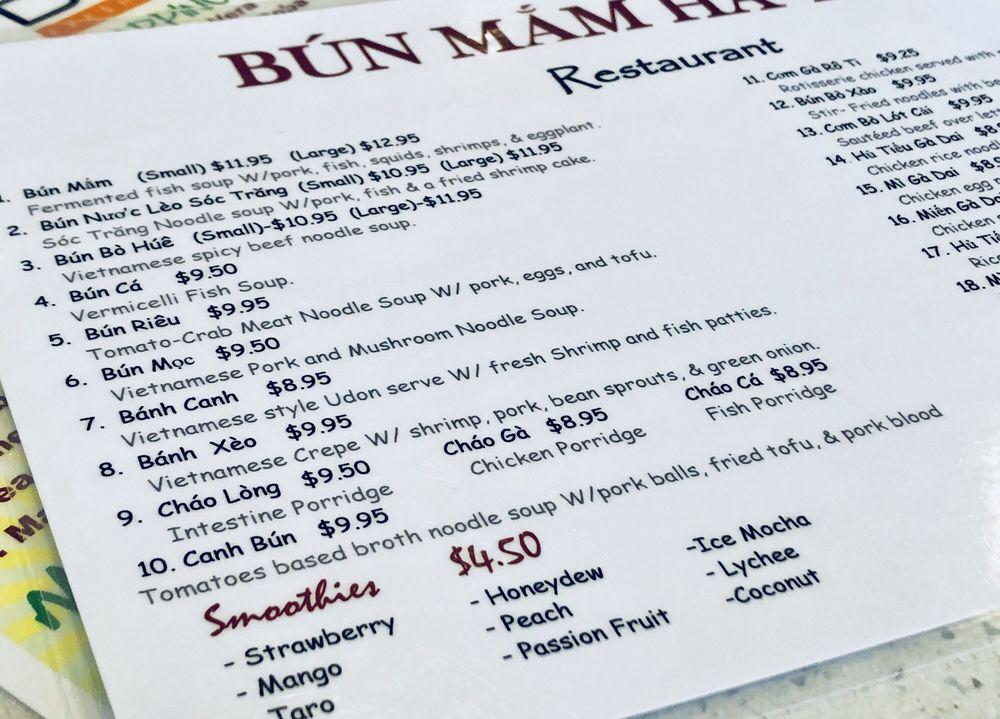 BÚN MẮM HA
Restaurant
Bún Mắm (Small) $11.95 (Large) $12.95
Fermented fish soup W/pork, fish, squids, shrimps, & eggplant.
2. Bún Nước Lèo Sóc Trăng (Small) $10.95 (Large) $11.95
Sóc Trăng Noodle soup W/pork, fish & a fried shrimp cake.
3. Bún Bò Húê (Small)-$10.95 (Large)-$11.95
Vietnamese spicy beef noodle soup.
4. Bún Cá $9.50
Vermicelli Fish Soup.
5. Bún Riêu $9.95
Tomato-Crab Meat Noodle Soup W/ pork, eggs, and tofu.
6. Bún Mọc $9.50
Vietnamese Pork and Mushroom Noodle Soup.
7. Bánh Canh $8.95
Vietnamese style Udon serve W/ fresh Shrimp and fish patties.
8. Bánh Xèo $9.95
Vietnamese Crepe W/ shrimp, pork, bean sprouts, & green onion.
9. Cháo Lòng $9.50 Cháo Gà $8.95 Cháo Cá $8.95
Intestine Porridge Chicken Porridge Fish Porridge
10. Canh Bún $9.95
Tomatoes based broth noodle soup W/pork balls, fried tofu, & pork blood
11. Cơm Gà Rô Ti $9.25
Rotisserie chicken served with
12. Bún Bò Xào $9.95
Stir-Fried noodles with
13. Cơm Bò Lót Cái $9.95
Sautéed beef over
14. Hủ Tiếu Gà Dai
Chicken rice
15. Mì Gà Dai
Chicken egg
16. Miến Gà Dai
Chicken
17. Hủ
18.
Smoothies $4.50
- Strawberry
- Mango
Taro
- Honeydew
- Peach
- Passion Fruit
-Ice Mocha
- Lychee
-Coconut